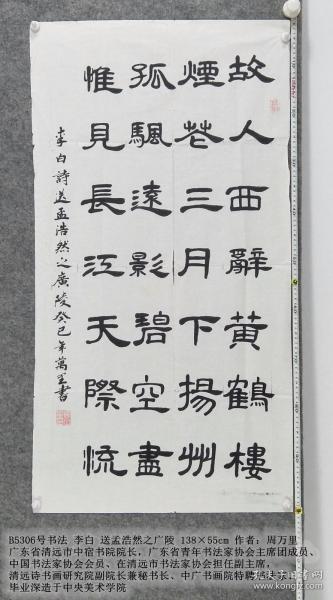 故人西辭黄鶴樓
煙花三月下揚州
孤颿遠影碧空盡
惟見長江天際流
李白詩送孟浩然之廣陵癸巳年萬里書
B5306号书法 李白 送孟浩然之广陵 138×55cm 作者：周万里
广东省清远市中宿书院院长，广东省青年书法家协会主席团成员、
中国书法家协会会员、在清远市书法家协会担任副主席，
清远诗书画研究院副院长兼秘书长、中广书画院特聘
毕业深造于中央美术学院